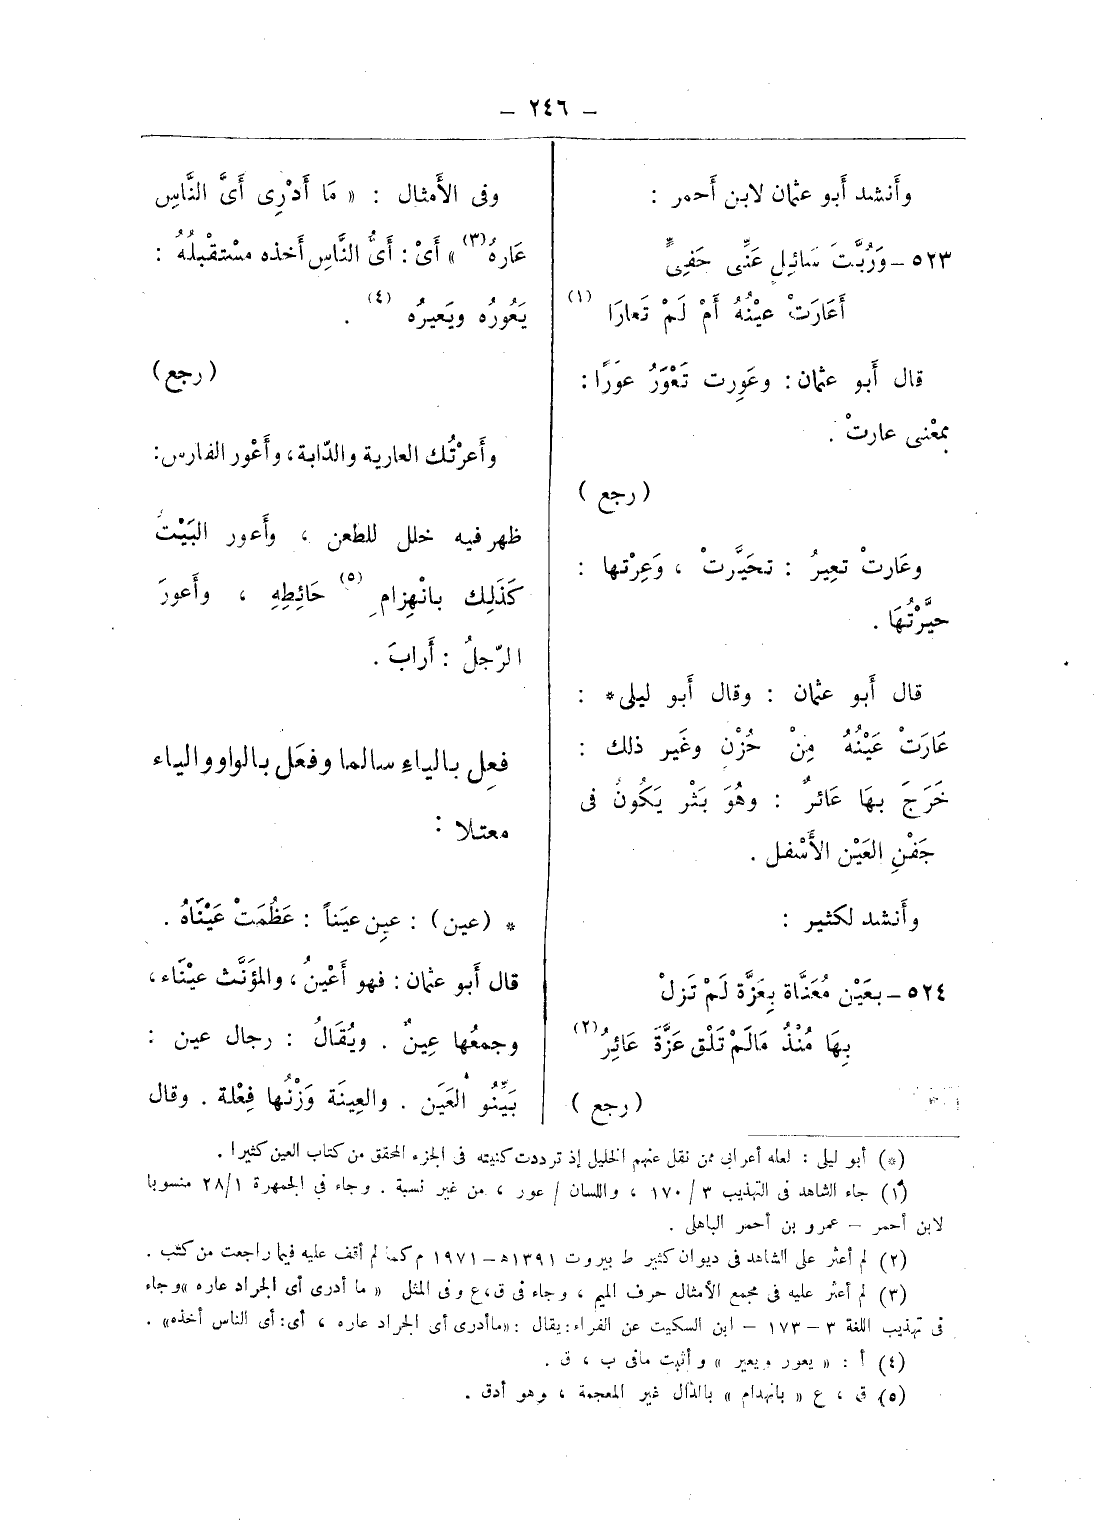 – ٢٤٦ –
وأَنشد أَبو عثمان لابن أَحمر :
٥٢٣ – وَرُبَّتَ سَائِلٍ عَنِّى حَفِىٍّ
أَعَارَتْ عيْنُهُ أَمْ لَمْ تَعارَا (١)
قال أَبو عثمان : وعَوِرت تَعْوَرُ عوَرًا :
بمعْنى عارتْ .
( رجع )
وعَارتْ تعِيرُ : تحَيَّرتْ ، وَعِرْتها :
حيَّرْتُهَا .
قال أَبو عثمان : وقال أَبو ليلى* :
عَارَتْ عَيْنُهُ مِنْ حُزْنٍ وغَير ذلك :
خَرَجَ بهَا عَائرٌ : وهُوَ بَثْر يَكُونُ فى
جَفْنِ العَيْن الأَسْفل .
وأَنشد لكثير :
٥٢٤ – بعَيْن مُعَنَّاة بِعَزَّة لَمْ تَزلْ
بِهَا مُنْذُ مَالَمْ تَلْق عَزَّةَ عَائِرُ (٢)
( رجع )
وفى الأَمثال : « مَا أَدْرِى أَىَّ النَّاسِ
عَارهُ (٣) » أَىْ : أَىُّ النَّاسِ أَخذه مسْتقْبلُهُ :
يَعُورُه ويَعيرُه (٤) .
( رجع )
وأَعرْتُك العارية والدّابة ، وأَعْور الفارس :
ظهر فيه خلل للطعن ، وأَعور البَيْتُ
كَذَلِك بانْهِزامِ (٥) حَائِطِهِ ، وأَعورَ
الرّجلُ : أَرابَ .
فعِل بالياءِ سالما وفعَل بالواو والياء
معتلا :
* (عين) : عيِن عيَناً : عَظُمَتْ عَيْنَاهُ .
قال أَبو عثمان : فهو أَعْينُ ، والمؤَنَّث عيْنَاء ،
وجمعُها عِينٌ . ويُقَالُ : رجال عين :
بَيِّنُو العَيَن . والعِينَة وَزْنُها فِعْلة . وقال
(*) أبو ليلى : لعله أعرابى ممن نقل عنهم الخليل إذ ترددت كنيته فى الجزء المحقق من كتاب العين كثيرا .
(١) جاء الشاهد فى التهذيب ٣ / ١٧٠ ، واللسان / عور ، من غير نسبة . وجاء فى الجمهرة ١/ ٢٨ منسوبا
لابن أحمر – عمرو بن أحمر الباهلى .
(٢) لم أعثر على الشاهد فى ديوان كثير ط بيروت ١٣٩١ه – ١٩٧١ م كما لم أقف عليه فيما راجعت من كتب .
(٣) لم أعثر عليه فى مجمع الأمثال حرف الميم ، وجاء فى ق،ع وفى المثل « ما أدرى أى الجراد عاره » وجاء
فى تهذيب اللغة ٣ – ١٧٣ – ابن السكيت عن الفراء : يقال : «ماأدرى أى الجراد عاره ، أى : أى الناس أخذه» .
(٤) أ : « يعور ويعير » وأثبت مافى ب ، ق .
(٥) ق ، ع « بانهدام » بالدال غير المعجمة ، وهو أدق .